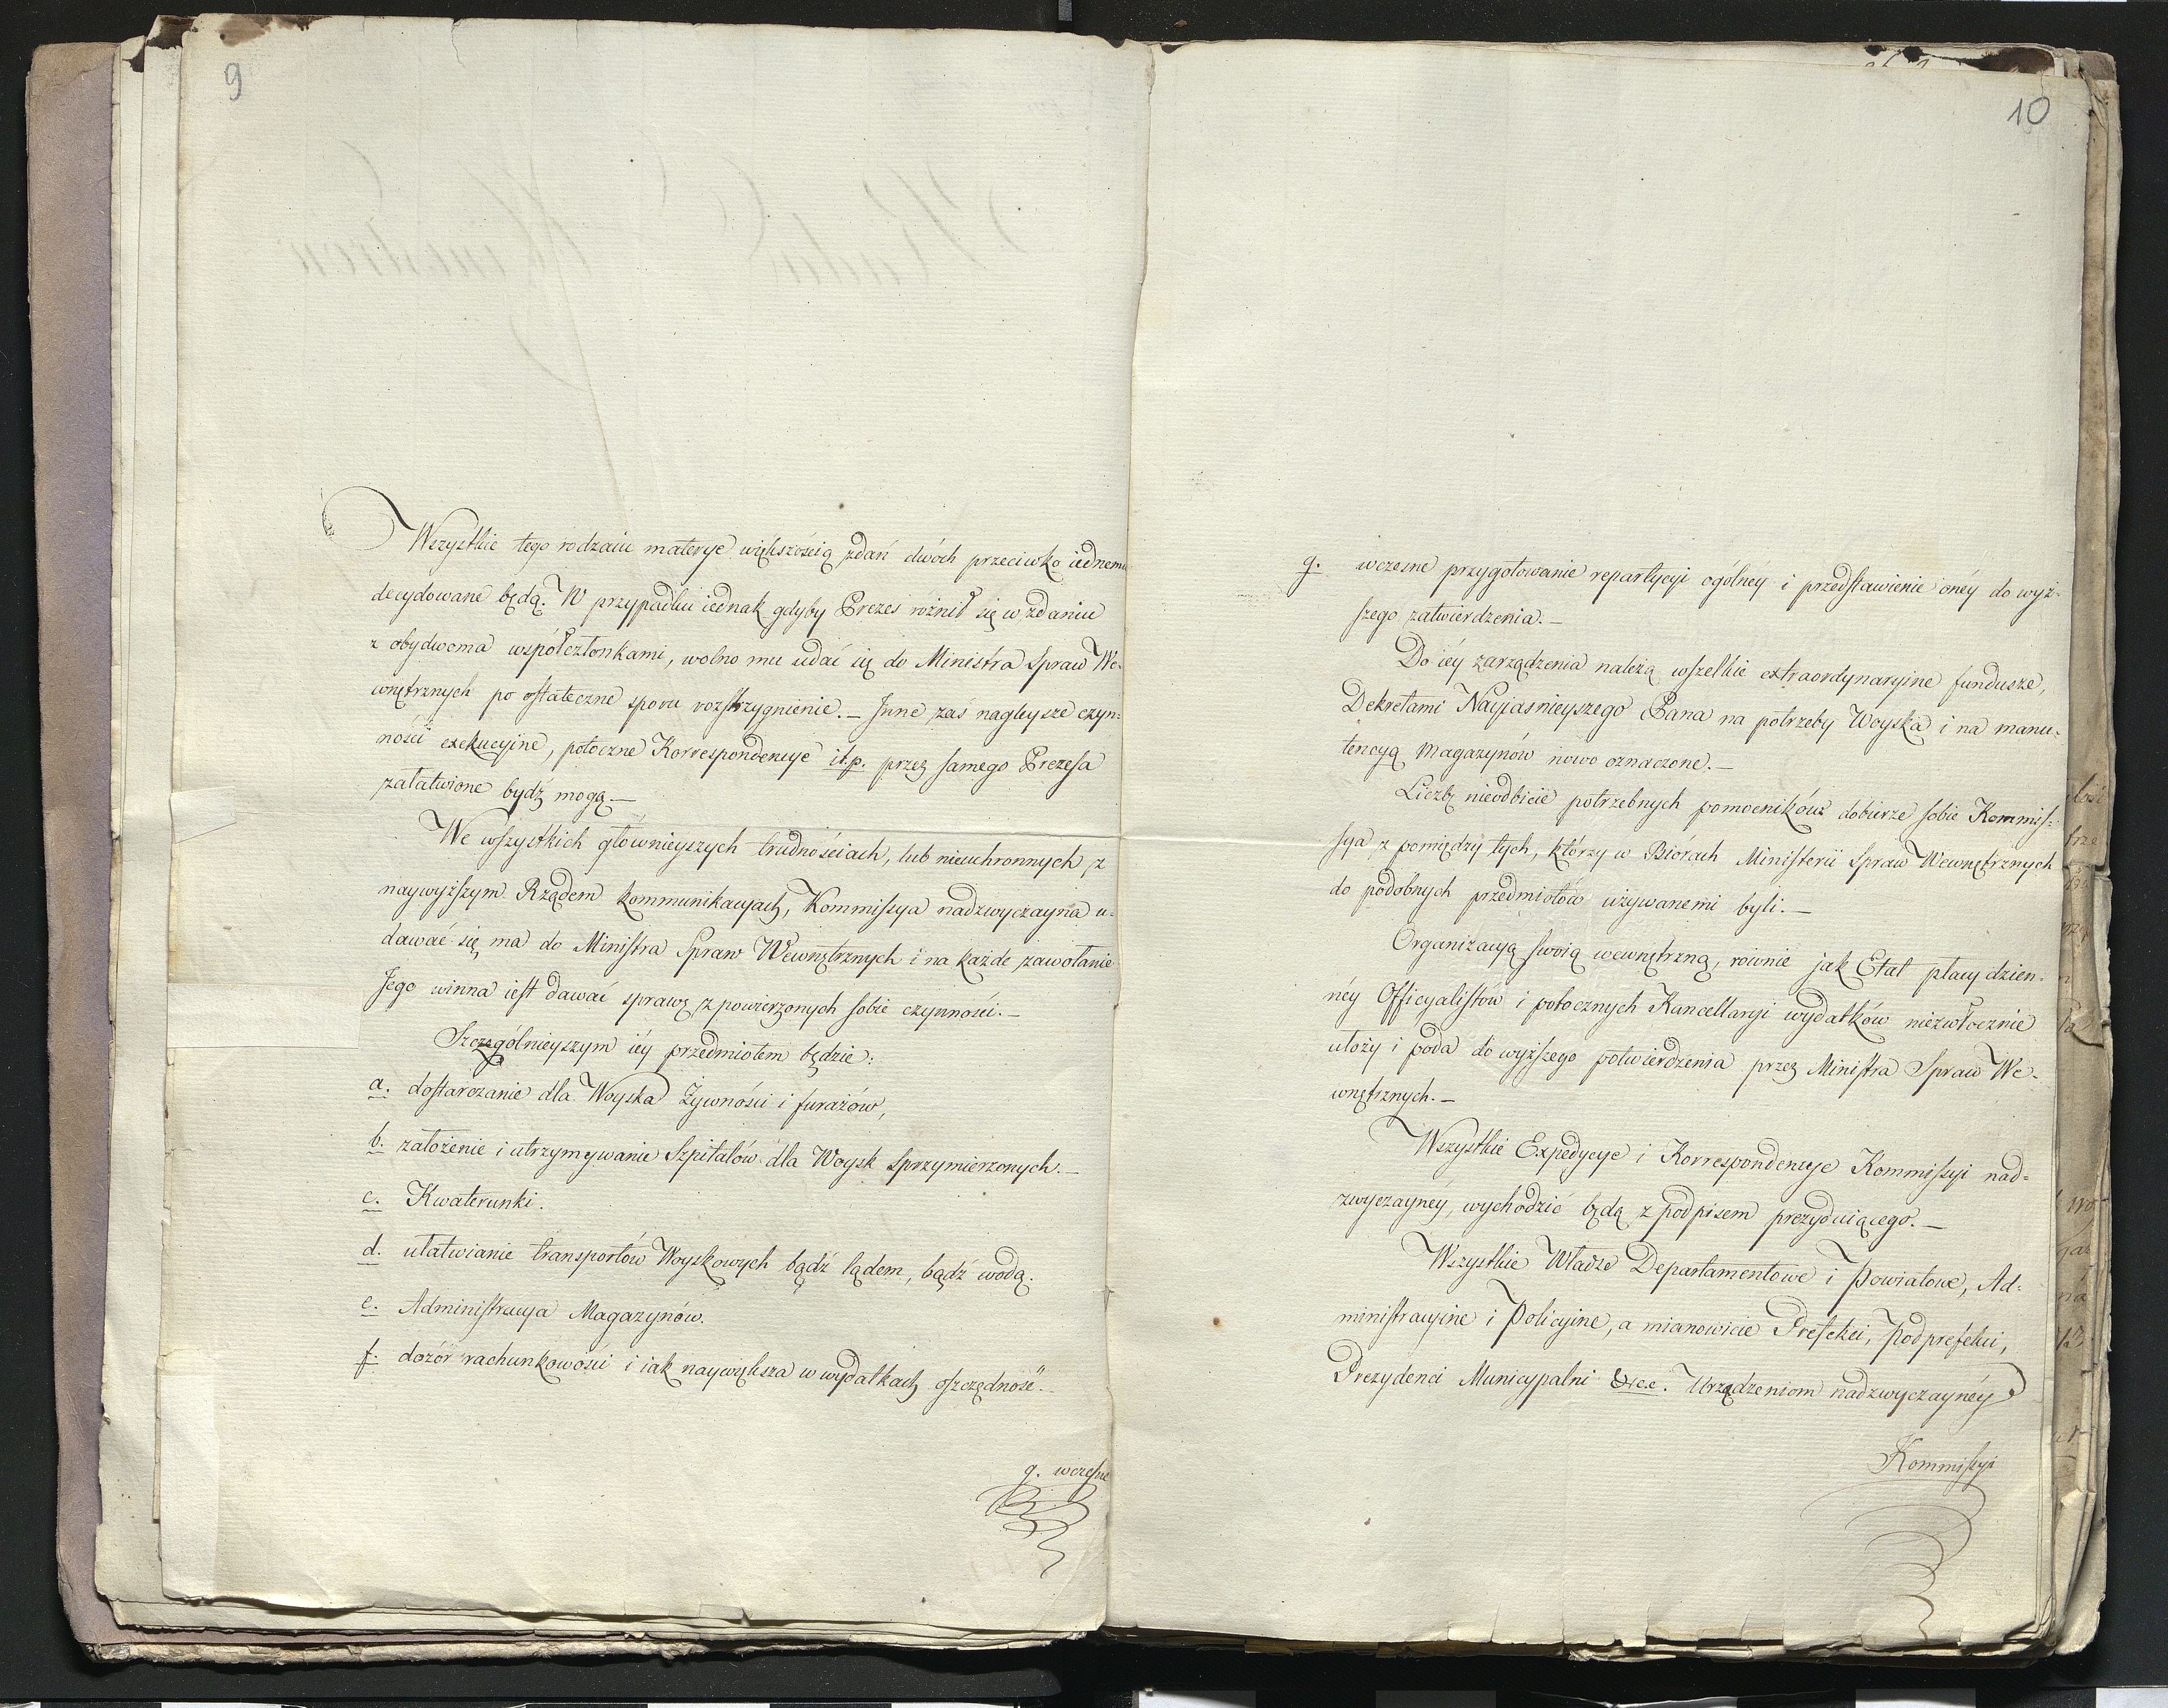 9
Wszystkie tego rodzaiu materye większością zdań dwóch przeciwko iednemu
decydowane będą. W przypadku iednak gdyby Prezes różnił się w zdaniu
z obydwoma współczłonkami, wolno mu udać się do Ministra Spraw We-
wnętrznych po ostateczne sporu rozstrzygnienie.— Inne zaś nagleysze czyn=
ności exekucyine, potoczne Korrespondencye it.p. przez samego Prezesa
załatwione bydź mogą.—
We wszystkich głównieyszych trudnościach, lub nieuchronnych z
naywyższym Rządem kommunikacyach, Kommissya nadzwyczayna u-
dawać się ma do Ministra Spraw Wewnętrznych i na każde zawołanie
Jego winna iest dawać sprawę z powierzonych sobie czynności.—
Szczególnieyszym iéy przedmiotem będzie:
a. dostarczanie dla Woyska Żywności i furażów,
b. założenie i utrzymywanie Szpitalów dla Woysk Sprzymierzonych.—
c. Kwaterunki.
d. ułatwianie transportów Woyskowych bądź lądem, bądź wodą.
e. Administracya Magazynów.
f. dozór rachunkowości i iak naywiększa w wydatkach oszczędność.
g. wczesne
10
g. wczesne przygotowanie repartycyi ogólnéy i przedstawienie onéy do wyż-
szego zatwierdzenia.—
Do iéy zarządzenia należą wszelkie extraordynaryine fundusze,
Dekretami Nayiaśnieyszego Pana na potrzeby Woyska i na manu-
tencyą Magazynów nowo oznaczone.—
Liczbę nieodbicie potrzebnych pomocników dobierze sobie Kommis-
sya z pomiędzy tych, którzy w Biórach Ministerii Spraw Wewnętrznych
do podobnych przedmiotów używanemi byli.—
Organizacyą swoią wewnętrzną, równie jak Etat płacy dzien-
néy Officyalistów i potocznych Kancellaryi wydatków niezwłocznie
ułoży i poda do wyższego potwierdzenia przez Ministra Spraw We-
wnętrznych.—
Wszystkie Expedycye i Korrespondencye Kommissyi nad=
zwyczaynéy, wychodzić będą z podpisem prezyduiącego.—
Wszystkie Władze Departamentowe i Powiatowe, Ad-
ministracyine i Policyine, a mianowicie Prefekci, Podprefekci,
Prezydenci Municypalni &c.c. Urządzeniom nadzwyczaynéy
Kommissyi